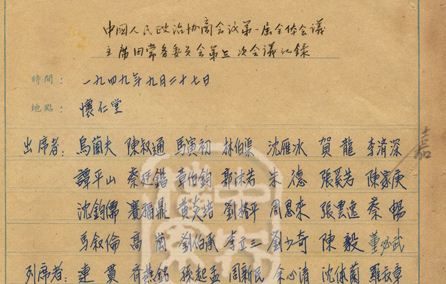 中國人民政治協商會議第一屆全体會議
主席团常务委員会第五次会議記錄
時間: 一九四九年九月二十七日
地點: 懷仁堂
出席者: 烏蘭夫 陳叔通 馬寅初 林伯渠 沈雁冰 賀龍 李濟深
譚平山 蔡廷鍇 章伯鈞 郭沫若 朱德 張奚若 陳嘉庚
沈鈞儒 賽福鼎 黃炎培 劉格平 周恩來 張雲逸 蔡暢
馬叙倫 高崗 劉伯承 李立三 劉少奇 陳毅 董必武
列席者: 連貫 齊燕銘 孫起孟 周新民 余心清 沈体蘭 羅叔章